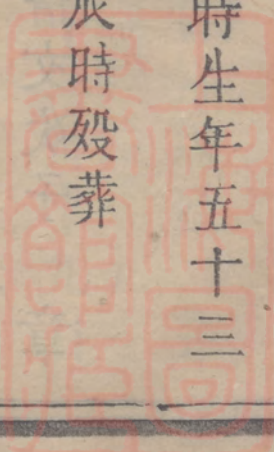 時生年五十三
辰時殁葬